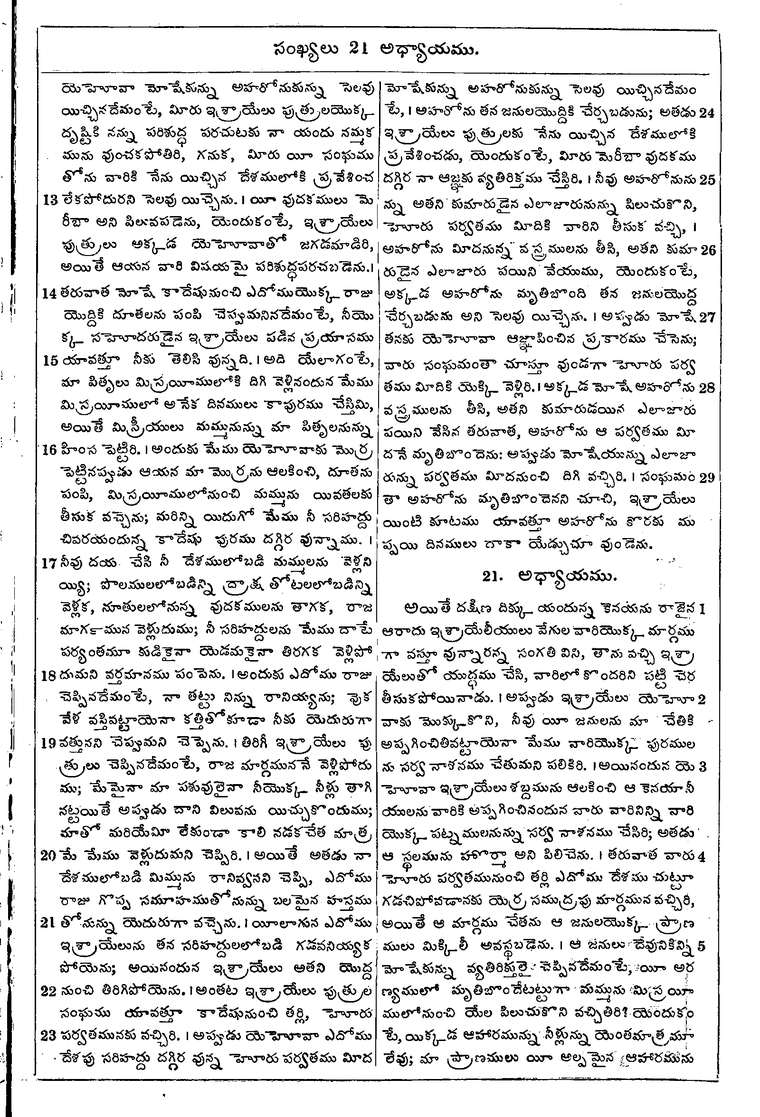 సంఖ్యలు 21 అధ్యాయము.
యెహోవా మోషేకున్ను అహరోనుకున్ను సెలవు
యిచ్చినదేమంటే, మీరు ఇశ్రాయేలు పుత్రులయొక్క
దృష్టికి నన్ను పరిశుద్ధ పరచుటకు నా యందు నమ్మక
మును వుంచకపోతిరి, గనుక, మీరు యీ సంఘము
తోను వారికి నేను యిచ్చిన దేశములోకి ప్రవేశించ
13 లేకపోదురని సెలవు యిచ్చెను. । యీ వుదకములు మె
రీబా అని పిలువపడెను, యెందుకంటే, ఇశ్రాయేలు
పుత్రులు అక్కడ యెహోవాతో జగడమాడిరి,
అయితే ఆయన వారి విషయమై పరిశుద్ధపరచబడెను.।
14 తరువాత మోషే కాదేషునుంచి ఎదోముయొక్క రాజు
యొద్దికి దూతలను పంపి చెప్పమనినదేమంటే, నీయొ
క్క సహోదరుడైన ఇశ్రాయేలు పడిన ప్రయాసము
15 యావత్తూ నీకు తెలిసి వున్నది. । అది యేలాగంటే,
మా పితృలు మిస్రయీములోకి దిగి వెళ్లినందున మేము
మిస్రయీములో అనేక దినములు కాపురము చేస్తిమి,
అయితే మిస్రీయులు మమ్మునున్ను మా పితృలనున్ను
16 హింస పెట్టిరి. । అందుకు మేము యెహోవాకు మొర్ర
పెట్టినప్పుడు ఆయన మా మొర్రను ఆలకించి, దూతను
పంపి, మిస్రయీములోనుంచి మమ్మును యివతలకు
తీసుక వచ్చెను; మరిన్ని యిదుగో మేము నీ సరిహద్దు
చివరయందున్న కాదేషు పురము దగ్గిర వున్నాము. ।
17 నీవు దయ చేసి నీ దేశములోబడి మమ్ములను వెళ్లని
య్యి; పొలములలోబడిన్ని ద్రాక్ష తోటలలోబడిన్ని
వెళ్లక, నూతులలోనున్న వుదకములను తాగక, రాజ
మార్గమున వెళ్లుదుము; నీ సరిహద్దులను మేము దాటే
పర్యంతమూ కుడికైనా యెడమకైనా తిరగక వెళ్లిపో
18 దుమని వర్తమానము పంపెను. । అందుకు ఎదోము రాజు
చెప్పినదేమంటే, నా తట్టు నిన్ను రానియ్యను; వొక
వేళ వస్తివట్టాయెనా కత్తితోకూడా నీకు యెదురుగా
19 వత్తునని చెప్పుమని చెప్పెను. । తిరిగీ ఇశ్రాయేలు పు
త్రులు చెప్పినదేమంటే, రాజ మార్గముననే వెళ్లిపోదు
ము; మేమైనా మా పశువులైనా నీయొక్క నీళ్లు తాగి
నట్టయితే అప్పుడు దాని విలువను యిచ్చుకొందుము;
మాతో మరియేమీ లేకుండా కాలి నడకచేత మాత్ర
20 మే మేము వెళ్లుదుమని చెప్పిరి. । అయితే అతడు నా
దేశములోబడి మిమ్మును రానివ్వనని చెప్పి, ఎదోము
రాజు గొప్ప సమూహముతోనున్ను బలమైన హస్తము
21 తోనున్ను యెదురుగా వచ్చెను. । యీలాగున ఎదోము
ఇశ్రాయేలును తన సరిహద్దులలోబడి గడవనియ్యక
పోయెను; అయినందున ఇశ్రాయేలు అతని యొద్ద
22 నుంచి తిరిగిపోయెను. । అంతట ఇశ్రాయేలు పుత్రుల
సంఘము యావత్తూ కాదేషునుంచి తర్లి, హోరు
23 పర్వతమునకు వచ్చిరి. । అప్పుడు యెహోవా ఎదోము
దేశపు సరిహద్దు దగ్గిర వున్న హోరు పర్వతము మీద
మోషేకున్ను అహరోనుకున్ను సెలవు యిచ్చినదేమం
టే, । అహరోను తన జనులయొద్దికి చేర్చబడును; అతడు 24
ఇశ్రాయేలు పుత్రులకు నేను యిచ్చిన దేశములోకి
ప్రవేశించడు, యెందుకంటే, మీరు మెరీబా వుదకము
దగ్గిర నా ఆజ్ఞకు వ్యతిరిక్తము చేస్తిరి. । నీవు అహరోనును 25
న్ను అతని కుమారుడైన ఎలాజారునున్ను పిలుచుకొని,
హోరు పర్వతము మీదికి వారిని తీసుక వచ్చి, ।
అహరోను మీదనున్న వస్త్రములను తీసి, అతని కుమా 26
రుడైన ఎలాజారు పయిని వేయుము, యెందుకంటే,
అక్కడ అహరోను మృతిబొంది తన జనులయొద్ద
చేర్చబడును అని సెలవు యిచ్చెను. । అప్పుడు మోషే 27
తనకు యెహోవా ఆజ్ఞాపించిన ప్రకారము చేసెను;
వారు సంఘమంతా చూస్తూ వుండగా హోరు పర్వ
తము మీదికి యెక్కి వెళ్లిరి. । అక్కడ మోషే అహరోను 28
వస్త్రములను తీసి, అతని కుమారుడయిన ఎలాజారు
పయిని వేసిన తరువాత, అహరోను ఆ పర్వతము మీ
దనే మృతిబొందెను: అప్పుడు మోషేయున్ను ఎలాజా
రున్ను పర్వతము మీదనుంచి దిగి వచ్చిరి. । సంఘమం 29
తా అహరోను మృతిబొందెనని చూచి, ఇశ్రాయేలు
యింటి కూటము యావత్తూ అహరోను కొరకు ము
ప్పయి దినములు దాకా యేడ్చుచూ వుండెను.
21. అధ్యాయము.
అయితే దక్షిణ దిక్కు యందున్న కెనయను రాజైన 1
ఆరాదు ఇశ్రాయేలీయులు వేగుల వారియొక్క మార్గము
గా వస్తూ వున్నారన్న సంగతి విని, తాను వచ్చి ఇశ్రా
యేలుతో యుద్ధము చేసి, వారిలో కొందరిని పట్టి చెర
తీసుకపోయినాడు. । అప్పుడు ఇశ్రాయేలు యెహో 2
వాకు మొక్కుకొని, నీవు యీ జనులను మా చేతికి
అప్పగించితివట్టాయెనా మేము వారియొక్క పురముల
ను సర్వ నాశనము చేతుమని పలికిరి. । అయినందున యె 3
హోవా ఇశ్రాయేలు శబ్దమును ఆలకించి ఆ కెనయానీ
యులను వారికి అప్పగించినందున వారు వారినిన్ని వారి
యొక్క పట్నములనున్ను సర్వ నాశనము చేసిరి; అతడు
ఆ స్థలమును హోర్మా అని పిలిచెను. । తరువాత వారు 4
హోరు పర్వతమునుంచి తర్లి ఎదోము దేశము చుట్టూ
గడచిపోవడానకు యెర్ర సముద్రపు మార్గమున వచ్చిరి,
అయితే ఆ మార్గము చేతను ఆ జనులయొక్క ప్రాణ
ములు మిక్కిలీ అవస్థబడెను. । ఆ జనులు దేవునికిన్ని 5
మోషేకున్ను వ్యతిరిక్తులై చెప్పినదేమంటే, యీ అర
ణ్యములో మృతిబొందేటట్టుగా మమ్మును మిస్రయీ
ములోనుంచి యేల పిలుచుకొని వచ్చితిరి? యెందుకం
టే, యిక్కడ ఆహారమున్ను నీళ్లున్ను యెంతమాత్రమూ
లేవు; మా ప్రాణములు యీ అల్పమైన ఆహారమును